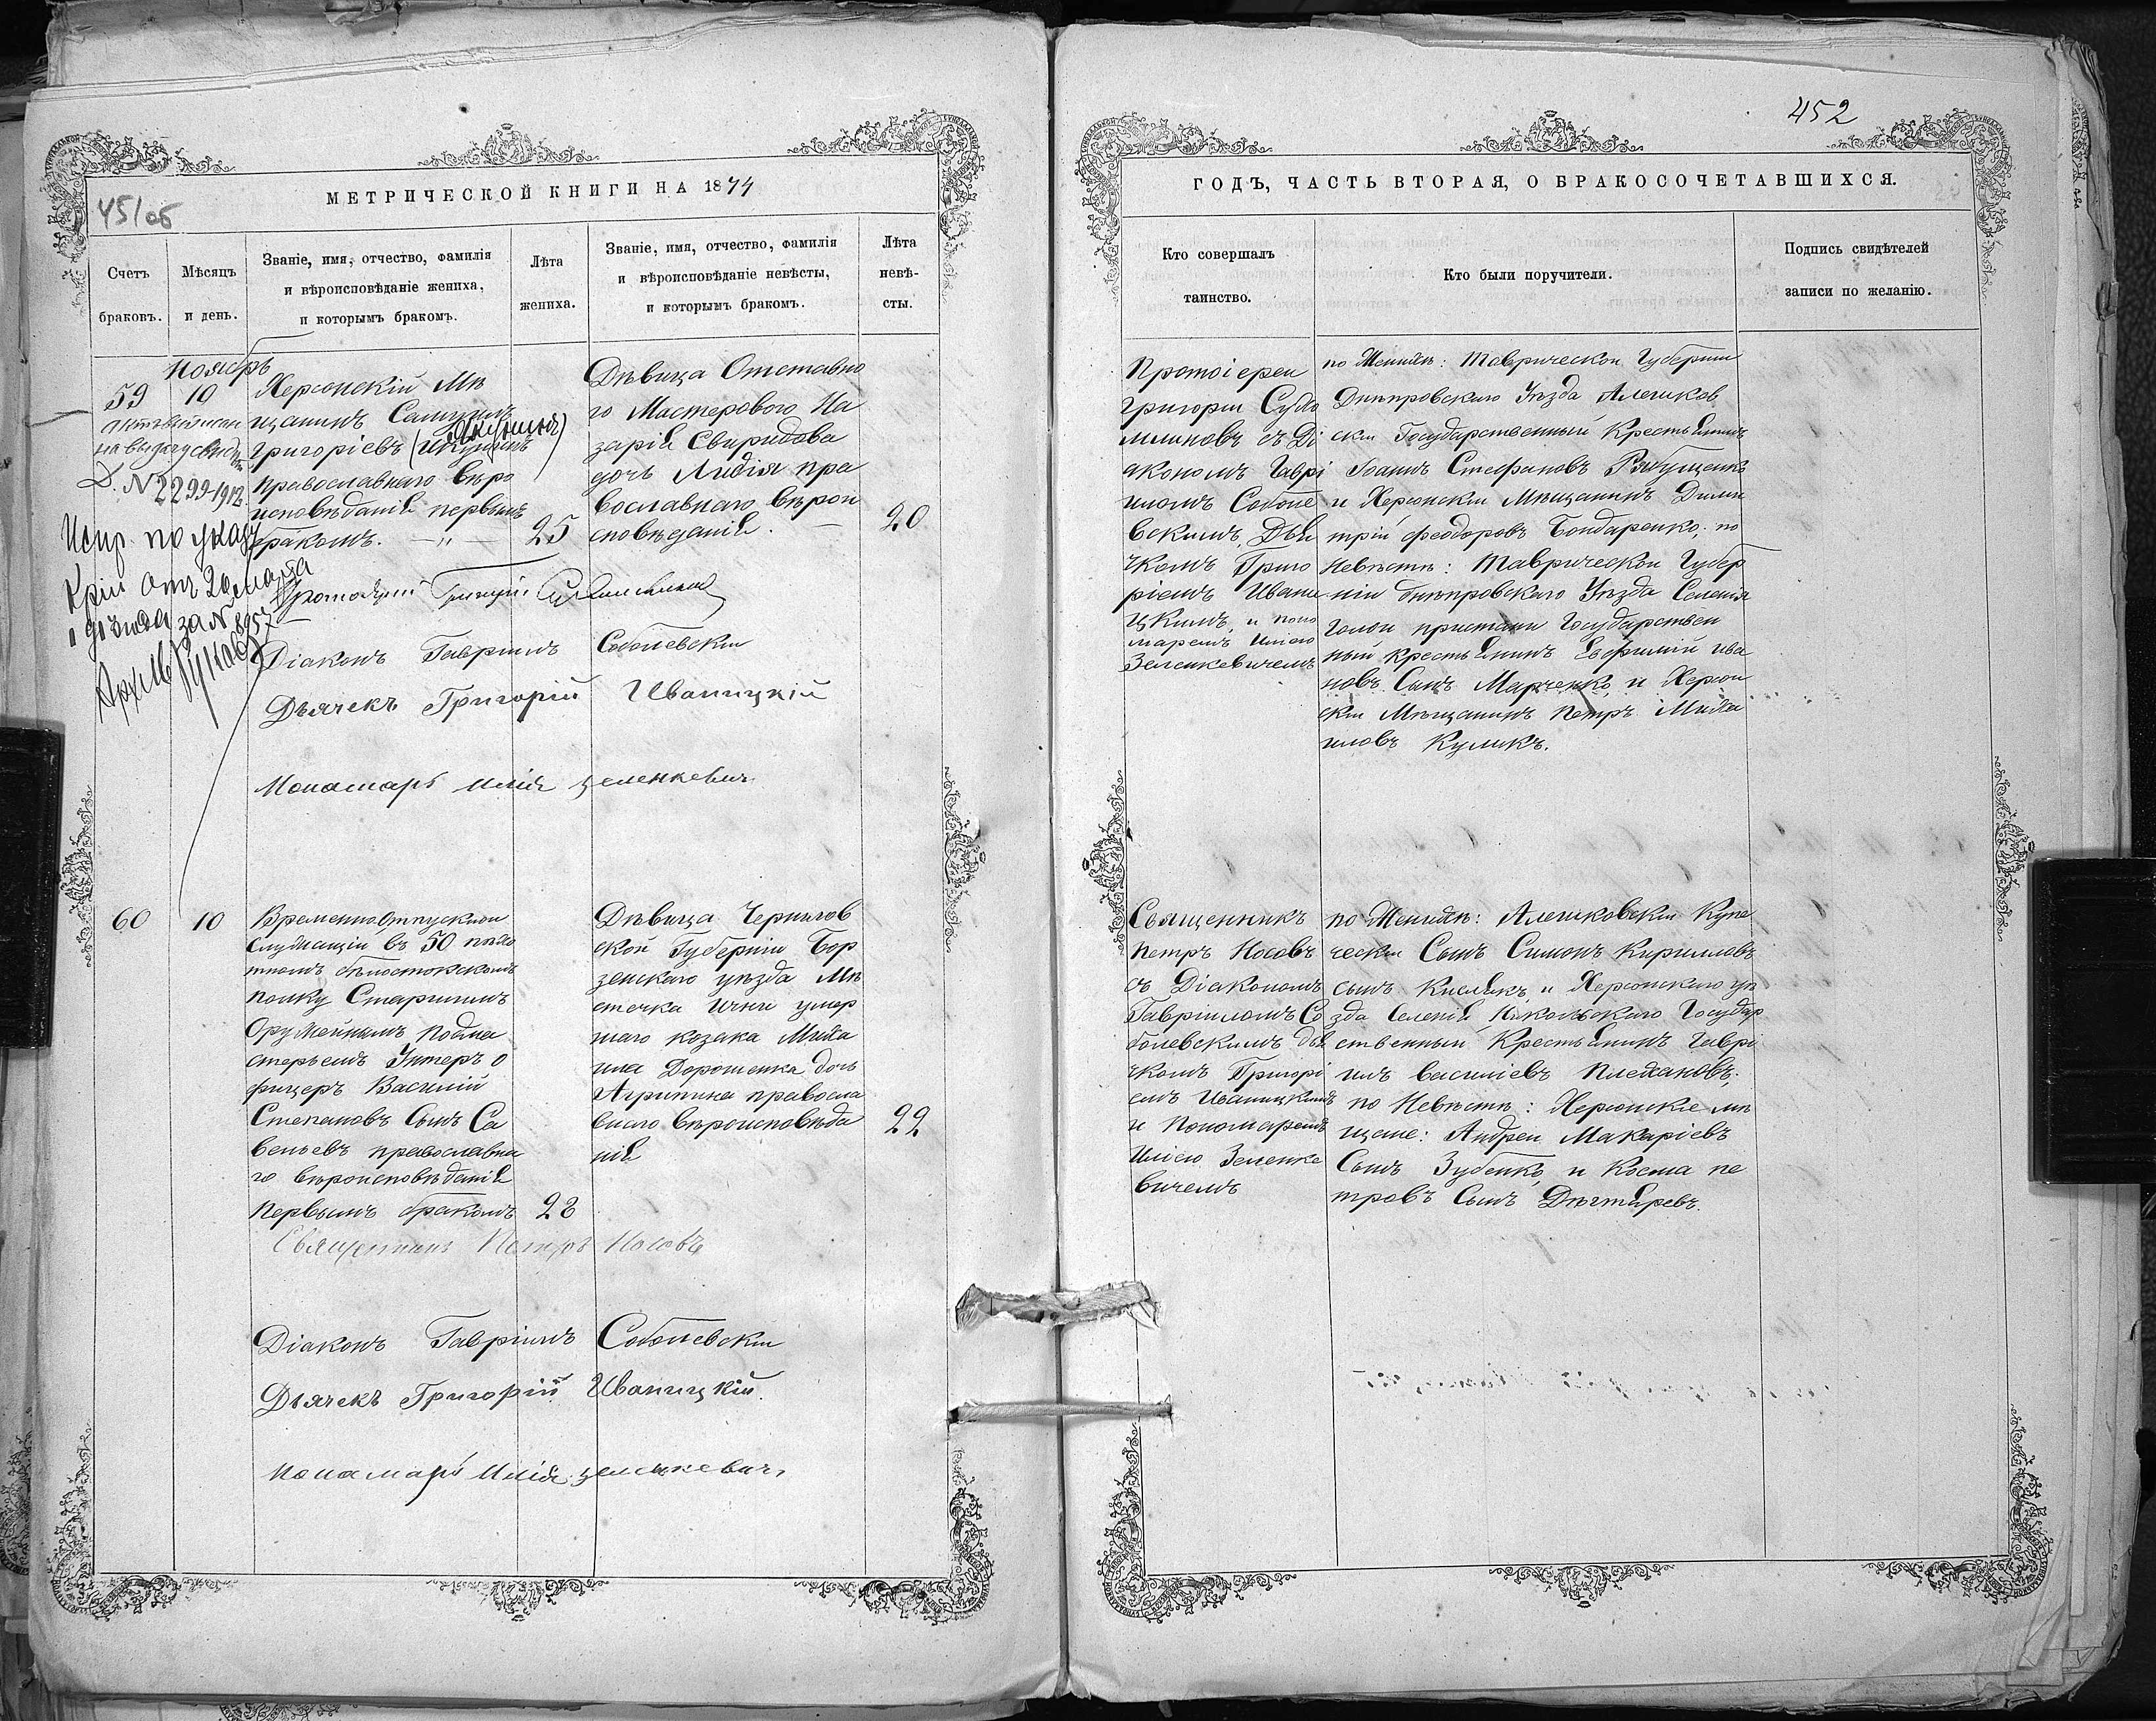 452
МЕТРИЧЕСКОЙ КНИГИ НА 1874
45/об
Счетъ браковъ.
Мѣсяцъ и день.
Званіе, имя, отчество, фамилія
и вѣроисповѣданіе жениха,
и которымъ бракомъ.
Лѣта
жениха.
Званіе, имя, отчество, фамилія
и вѣроисповѣданіе невѣсты,
и которымъ бракомъ.
Лѣта
невѣ-
сты.
Ноябрь
59
10
Херсонскій Мѣ
щанинъ
Григоріевъ
православнаго вѣро
исповѣданія первымъ
бракомъ.
25
Дѣвица Отставно
го Мастерового На
зарія Свиридова
дочь Лидія пра
вославнаго вѣрои
сповѣданія.
20
на выдачу
Д. № 2299-1912
Испр. по указу
за № 8957
Протоіерей Григорій
Діаконъ Гавріилъ Соболевскій
Дьячекъ Григорій Иваницкій
Понамарь Илія Зеленкевичъ
60
10
Временно Отпускной
Служащій въ 50 пѣхо
тномъ бѣлостокскомъ
полку Старшимъ
Оружейнымъ Подма
стерьемъ Унтеръ о
фицеръ Василій
Степановъ Сынъ Са
вельевъ православна
го вѣроисповѣданія
Первымъ бракомъ
28
Дѣвица Чернигов
ской Губерніи Бор
зенскаго уѣзда Мѣ
стечка Ични умер
шаго козака Миха
ила Дорошенка дочь
Агрипина правосла
внаго вѣроисповѣда
нія
22
Священникъ Петръ Носовъ
Діаконъ Гавріилъ Соболевскій
Дьячекъ Григорій Иваницкій.
Понамарь Илія Зеленкевичъ
ГОДЪ, ЧАСТЬ ВТОРАЯ, О БРАКОСОЧЕТАВШИХСЯ.
Кто совершалъ
таинство.
Кто были поручители.
Подпись свидѣтелей
записи по желанію.
Протоіерей
Григорій
съ Ді
акономъ Гаврі
иломъ Соболе
вскимъ, Дья
чкомъ Григо
ріемъ Ивани
цкимъ, и поно
маремъ Иліею
Зеленкевичемъ
по Женихѣ: Таврической Губерніи
Днѣпровскаго Уѣзда Алешков
скій Государственный Крестьянинъ
Іоаннъ Стефановъ Рябущенко
и Херсонскій Мѣщанинъ Дими
трій Феодоровъ Бондаренко; по
Невѣстѣ: Таврической Губер
ніи Днѣпровскаго Уѣзда Селенія
Голой пристани Государствен
ный Крестьянинъ Евфимій Ива
новъ Сынъ Марченко, и Херсон
скій Мѣщанинъ Петръ Миха
иловъ Куликъ.
Священникъ
Петръ Носовъ
съ Діакономъ
Гавріиломъ Со
болевскимъ дья
чкомъ Григорі
емъ Иваницкимъ
и Пономаремъ
Иліею Зеленке
вичемъ
по Женихѣ: Алешковскій Купе
ческій Сынъ Симонъ Кирилловъ
сынъ Киселикъ, и Херсонскаго уѣ
зда Селенія Никольскаго Государ
ственный Крестьянинъ Гаврі
илъ Василіевъ Плехановъ;
по Невѣстѣ: Херсонскіе мѣ
щане: Андрей Макаріевъ
Сынъ Зубенко, и Косма пе
тровъ Сынъ Дѣгтяревъ.